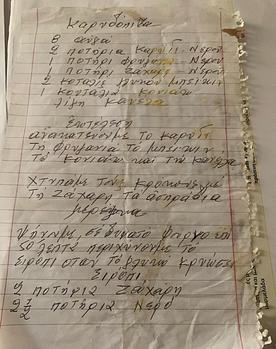 Καρυδόπιτα
8 αυγά
2 ποτήρια Καρύδι. Νερού
1 ποτήρι φρυγανιά. Νερού
1 ποτήρι Ζάχαρη. Νερού
2 κουταλ γλυκού μπέικιν
1 κουταλιά κονιάκ
λίγη Κανέλα
Εκτέλεση
ανακατεύουμε το καρύδι
Τη φρυγανιά το μπέικιν
Το Κονιάκ και την κανέλα
Χτυπάμε τους κρόκους με
Τη Ζάχαρη τα ασπράδια
μαρέγκα
Ψήνουμε, σε δυνατό φούρνο επί
50 λεπτά περιχύνουμε το
Σιρόπι όταν το γλυκό κρυώσει
Σιρόπι
2 ποτήρια Ζάχαρη
2 1/2 ποτήρια Νερό